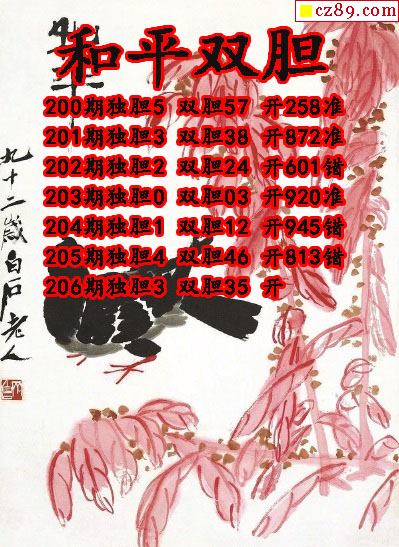 cz89.com
和平双胆
200期独胆5 双胆57 开258准
201期独胆3 双胆38 开872准
202期独胆2 双胆24 开601错
203期独胆0 双胆03 开920准
204期独胆1 双胆12 开945错
205期独胆4 双胆46 开813错
206期独胆3 双胆35 开
九十二岁白石老人